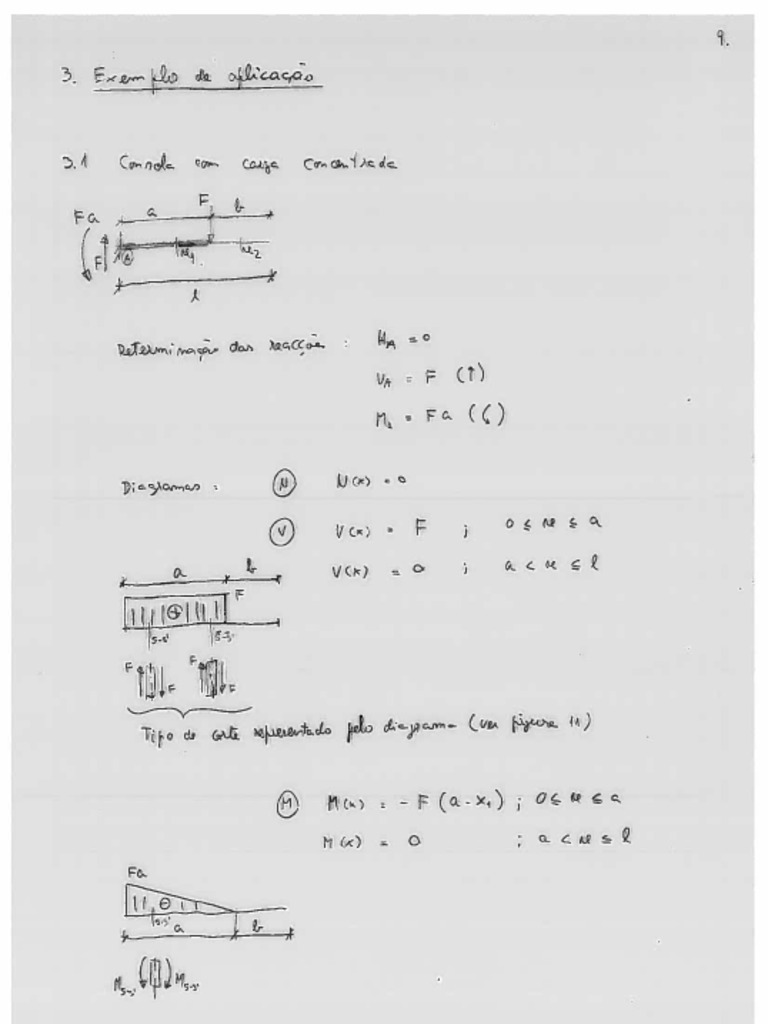 9.
3. Exemplo de aplicação
3.1 Consola com carga concentrada
F
a b
Fa
F A x₁ x₂
l
Determinação das reacções : H_A = 0
V_A = F (↑)
M_A = Fa (
Diagramas : N N(x) = 0
V V(x) = F ; 0 ≤ x ≤ a
V(x) = 0 ; a < x ≤ l
a b
⊕ F
S-S' S-S'
F F F F
Tipo de corte representado pelo diagrama (ver figura 11)
M M(x) = - F (a - x₁) ; 0 ≤ x ≤ a
M(x) = 0 ; a < x ≤ l
Fa
⊖
S-S'
a b
M_S-S' M_S-S'